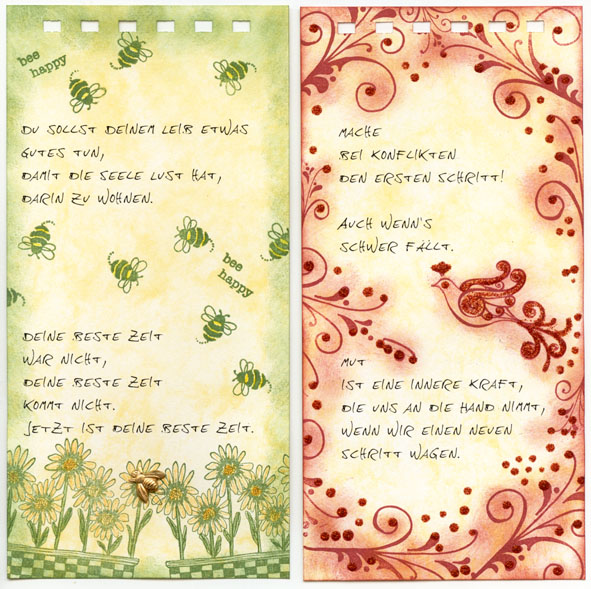 bee
happy
DU SOLLST DEINEM LEIB ETWAS
GUTES TUN,
DAMIT DIE SEELE LUST HAT,
DARIN ZU WOHNEN.
bee
happy
DEINE BESTE ZEIT
WAR NICHT,
DEINE BESTE ZEIT
KOMMT NICHT.
JETZT IST DEINE BESTE ZEIT.
MACHE
BEI KONFLIKTEN
DEN ERSTEN SCHRITT!
AUCH WENN'S
SCHWER FÄLLT.
MUT
IST EINE INNERE KRAFT,
DIE UNS AN DIE HAND NIMMT,
WENN WIR EINEN NEUEN
SCHRITT WAGEN.